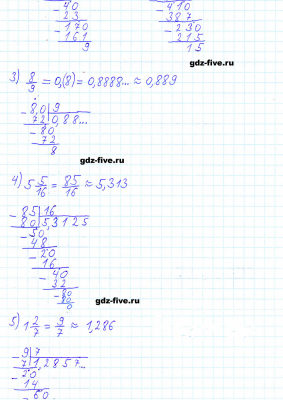 40 410
- 23 - 387
- 170 - 230
161 - 215
9 15
gdz-five.ru
3) 8/9 = 0,(8) = 0,8888... ≈ 0,889
- 8,0 | 9
72 | 0,88...
- 80
72
8
gdz-five.ru
4) 5 5/16 = 85/16 ≈ 5,313
- 85 | 16
80 | 5,3125
- 50
48
- 20
16
- 40
32
- 80
80
0
gdz-five.ru
5) 1 2/7 = 9/7 ≈ 1,286
- 9 | 7
7 | 1,2857...
- 20
14
- 60